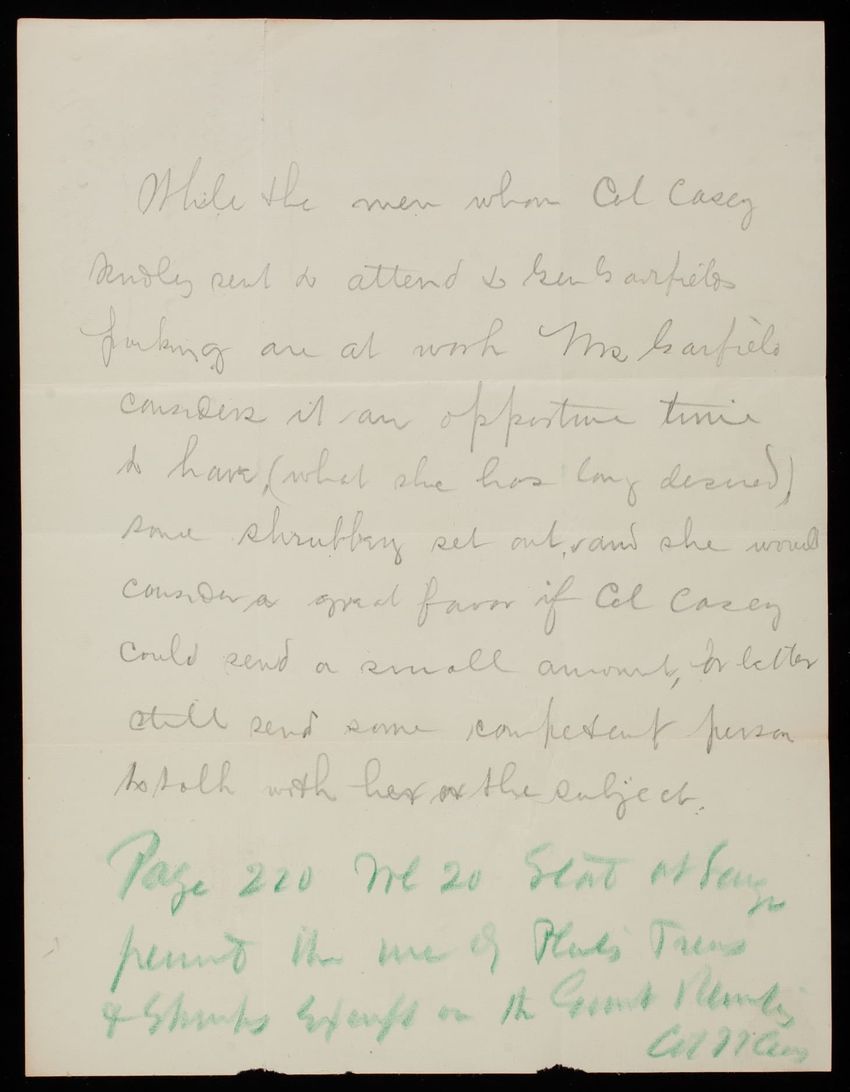 While the men whom Col Casey
kindly sent to attend to Gen Garfields
parking are at work Mrs Garfield
considers it an opportune time
to have, (what she has long desired)
some shrubbery set out, and she would
consider a great favor if Col Casey
could send a small amount, or better
still send some competent person
to talk with her on the subject.
Page 220 Vol 20 Stat at Large
permit the use of Plants Trees
& Shrubs Except on the Govmt